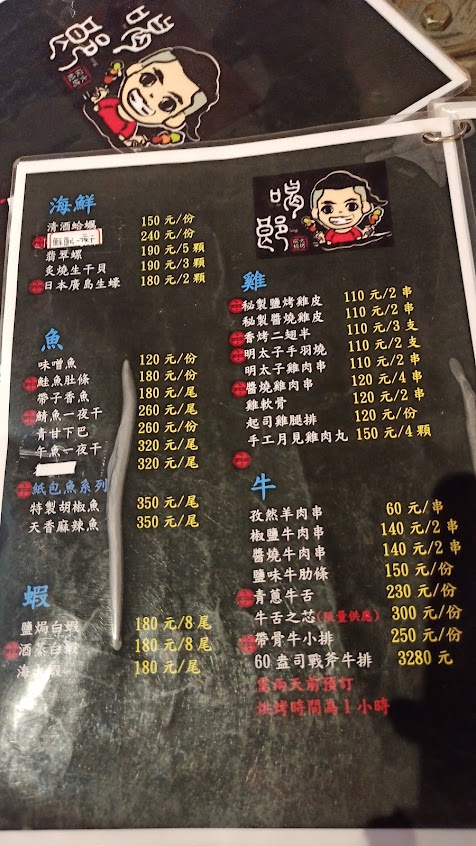 海鮮
清酒蛤蠣 150 元/份
240 元/份
翡翠螺 190 元/5 顆
炙燒生干貝 190 元/3 顆
日本廣島生蠔 180 元/2 顆
魚
味噌魚 120 元/份
鮭魚肚條 180 元/份
帶子香魚 180 元/尾
鯖魚一夜干 260 元/尾
青甘下巴 260 元/份
午魚一夜干 320 元/尾
320 元/尾
紙包魚系列
特製胡椒魚 350 元/尾
天香麻辣魚 350 元/尾
蝦
鹽焗白蝦 180 元/8 尾
酒蒸白蝦 180 元/8 尾
180 元/尾
喝郎
雞
秘製鹽烤雞皮 110 元/2 串
秘製醬燒雞皮 110 元/2 串
香烤二翅半 110 元/3 支
明太子手羽燒 110 元/2 支
明太子雞肉串 110 元/2 串
醬燒雞肉串 120 元/4 串
雞軟骨 120 元/份
起司雞腿排 120 元/份
手工月見雞肉丸 150 元/4 顆
牛
孜然羊肉串 60 元/串
椒鹽牛肉串 140 元/2 串
醬燒牛肉串 140 元/2 串
鹽味牛肋條 150 元/份
青蔥牛舌 230 元/份
牛舌之芯(限量供應) 300 元/份
帶骨牛小排 250 元/份
60 盎司戰斧牛排 3280 元
需兩天前預訂
烘烤時間為 1 小時